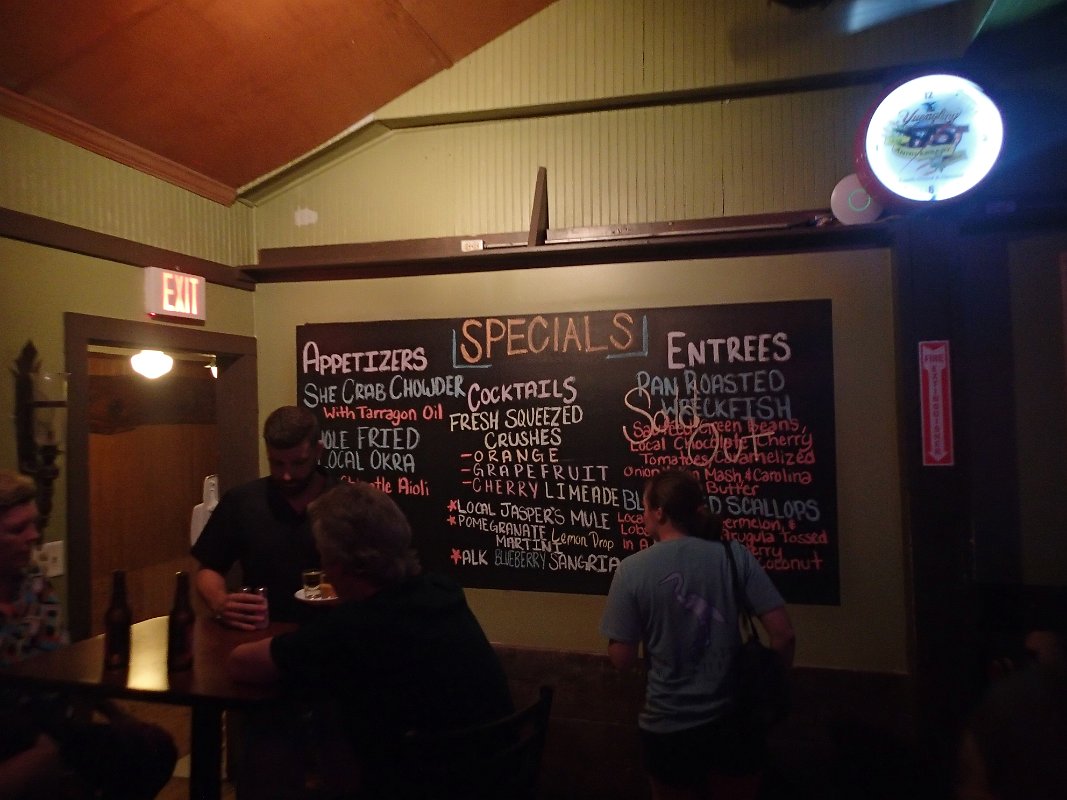 EXIT
SPECIALS
APPETIZERS
SHE CRAB CHOWDER
With Tarragon Oil
OLE FRIED
OCAL OKRA
Aioli
COCKTAILS
FRESH SQUEEZED
CRUSHES
-ORANGE
-GRAPEFRUIT
-CHERRY LIMEADE
*LOCAL JASPER'S MULE
*POMEGRANATE Lemon Drop
MARTINI
*ALK BLUEBERRY SANGRIA
ENTREES
PAN ROASTED
WRECKFISH
Sold Out
Green Beans,
Local Chocolate Cherry
Tomatoes Caramelized
Onion Mash & Carolina
Butter
BL D SCALLOPS
Loca ermelon, &
Lob Arugula Tossed
in A erry
Coconut
12
Yuengling
6
FIRE EXTINGUISHER